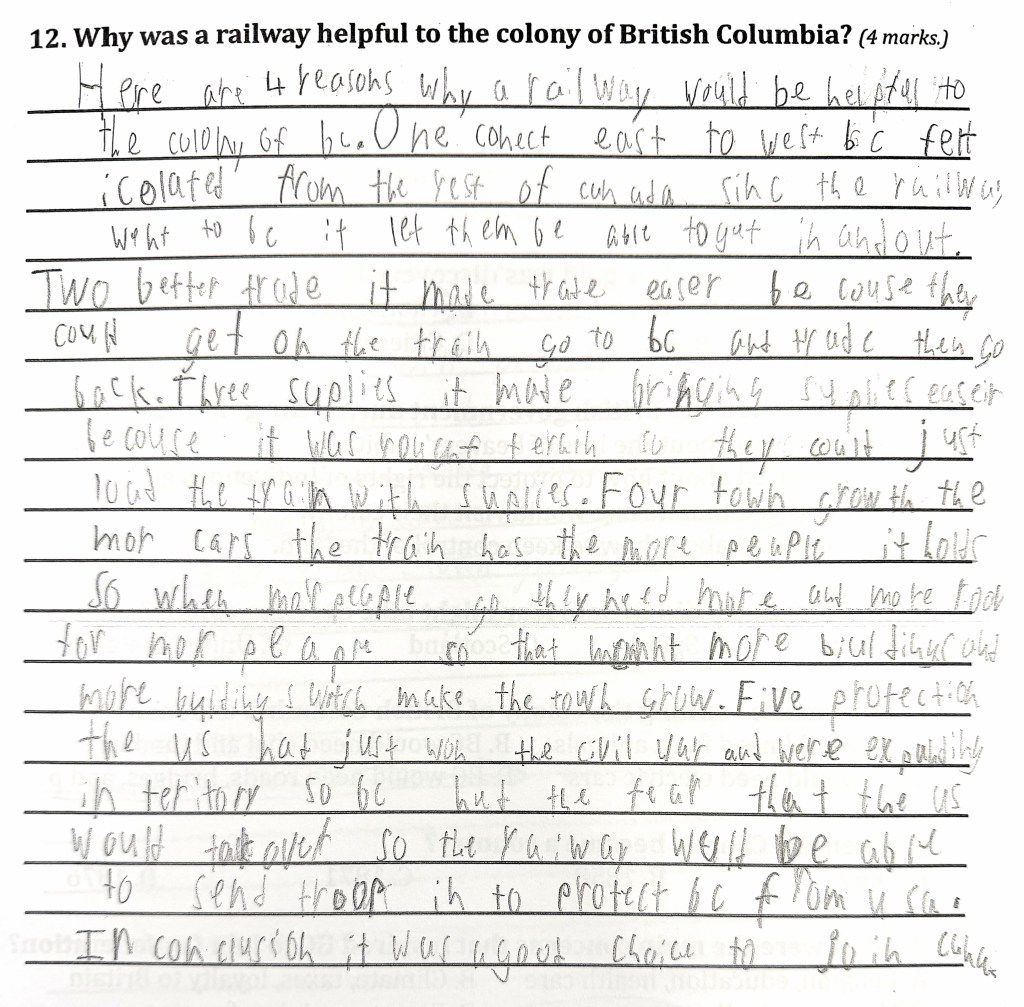 12. Why was a railway helpful to the colony of British Columbia? (4 marks.)
Here are 4 reasons why a railway would be helpful to
the colony of bc. One conect east to west bc felt
icolated from the rest of canada sinc the railway
went to bc it let them be able to gut in and out.
Two better trade it made trade easer be couse they
could get on the train go to bc and trade then go
back. Three suplies it made bringing suplies easeir
becouse it was rough terain so they could just
load the train with suplies. Four town growth the
mor cars the train has the more people it holds
so when mor people go they need more and more food
for mor peaple so that meant more biuldings and
more buldings witch make the town grow. Five protection
the us had just won the civil war and were expanding
in teritory so bc had the fear that the us
would take over so the raiway would be able
to send troop in to protect bc from usa.
In conclusion it was a good choice to join